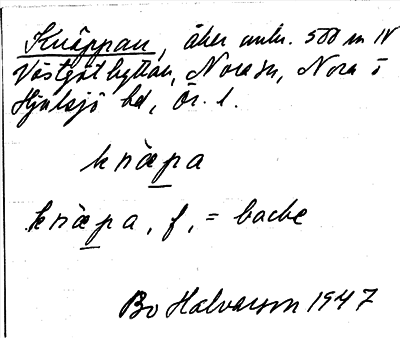 Knäppan, åker omkr. 500 m N
Västgöthyttan, Nora sn, Nora o
Hjulsjö bd, Ör. l.
knæpa
knæpa, f, = backe
Bo Halvarson 1947